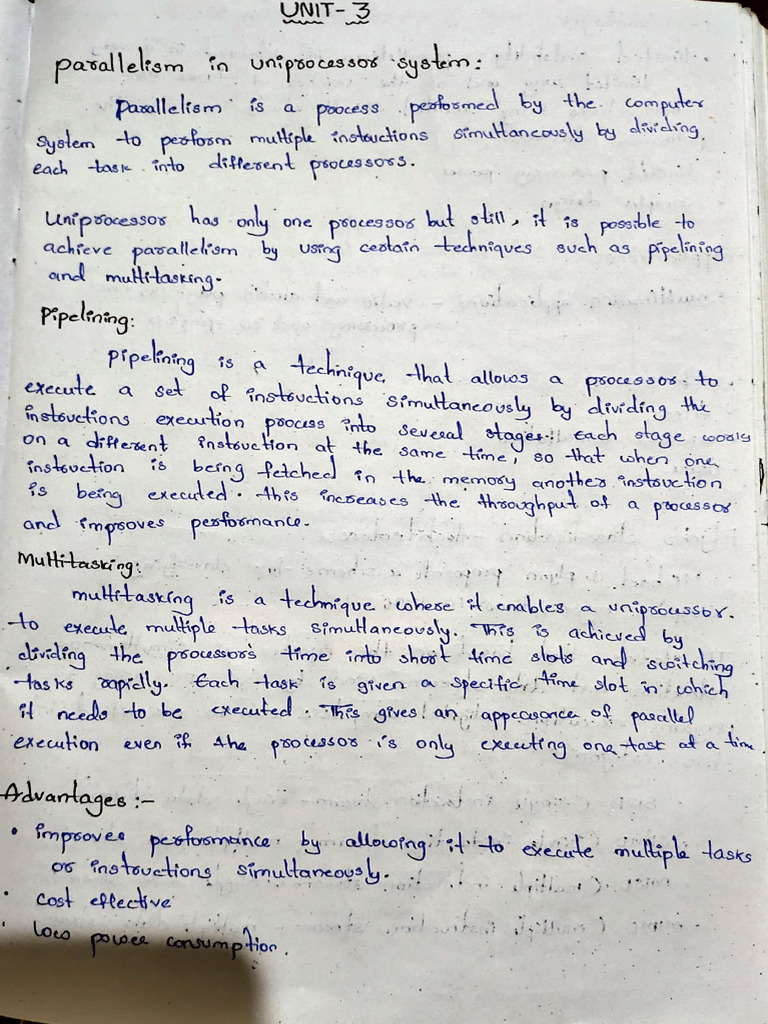 UNIT-3
parallelism in uniprocessor system:
Parallelism is a process performed by the computer
system to perform multiple instructions simultaneously by dividing
each task into different processors.
Uniprocessor has only one processor but still, it is possible to
achieve parallelism by using certain techniques such as pipelining
and multitasking.
Pipelining:
Pipelining is a technique that allows a processor to
execute a set of instructions simultaneously by dividing the
instructions execution process into several stages. Each stage works
on a different instruction at the same time, so that when one
instruction is being fetched in the memory another instruction
is being executed. this increases the throughput of a processor
and improves performance.
Multitasking:
multitasking is a technique where it enables a uniprocessor.
to execute multiple tasks simultaneously. This is achieved by
dividing the processor's time into short time slots and switching
tasks rapidly. Each task is given a specific time slot in which
it needs to be executed. This gives an appearance of parallel
execution even if the processor is only executing one task at a time
Advantages :-
• improves performance by allowing it to execute multiple tasks
or instructions simultaneously.
• cost effective
• low power consumption.